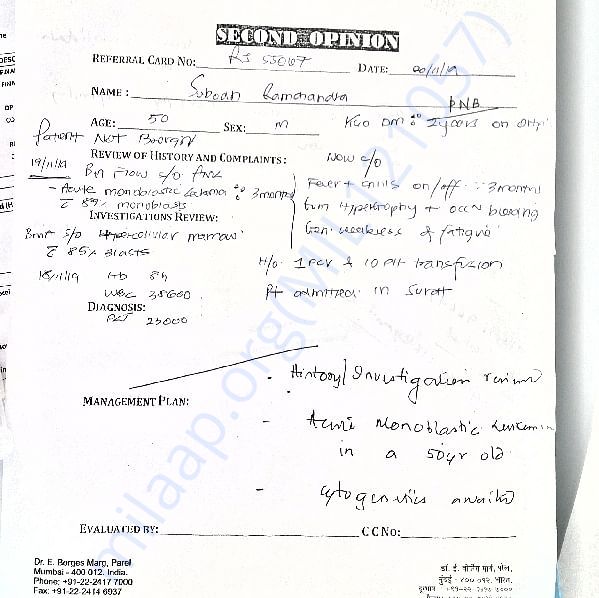 SECOND OPINION
REFERRAL CARD NO: RJ 55067 DATE: 20/11/19
NAME: Suboah Ramchandra
PNB
AGE: 50 SEX: m K/c/o DM 2 years on
Patient Not Brought
REVIEW OF HISTORY AND COMPLAINTS: Now c/o
19/11/19 BM Flow s/o
- Acute monoblastic Leukemia 3 months
Fever + chills on/off 3 months
c 89% monoblasts
Gum Hypertrophy + occ bleeding
INVESTIGATIONS REVIEW:
Gen. weakness & fatigue
BMA s/o Hypercellular marrow
c 85% blasts
H/o 1 PCV & 10 Plt transfusion
18/11/19 Hb 84
WBC 35600
Pt admitted in Surat
DIAGNOSIS:
PLT 23000
- History/Investigation reviewed
MANAGEMENT PLAN:
- Acute Monoblastic Leukemia
in a 50yr old
- Cytogenetics awaited
EVALUATED BY: CC NO:
Dr. E. Borges Marg, Parel
Mumbai - 400 012. India.
Phone: +91-22-2417 7000
Fax: +91-22-2414 6937
डॉ. ई. बोर्जेस मार्ग, परेल,
मुंबई - ४०० ०१२. भारत.
milaap.org(MILA21057)